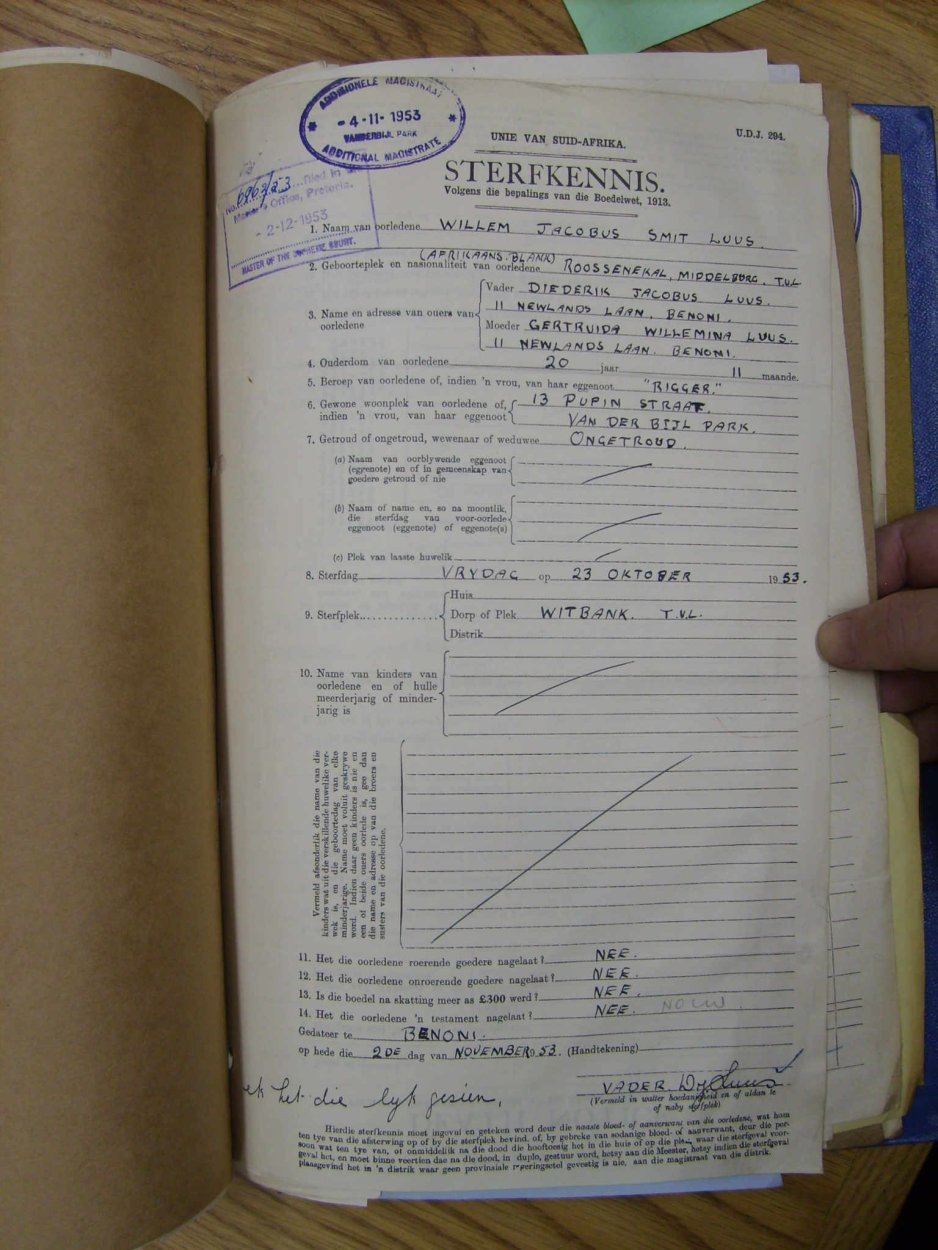 ADDISIONELE MAGISTRAAT
- 4 -11- 1953
VANDERBIJL PARK
ADDITIONAL MAGISTRATE
U.D.J. 294.
UNIE VAN SUID-AFRIKA.
STERFKENNIS.
Volgens die bepalings van die Boedelwet, 1913.
No. 6963/53 Filed in the
Master's Office, Pretoria.
- 2-12-1953
MASTER OF THE SUPREME COURT.
1. Naam van oorledene WILLEM JACOBUS SMIT LUUS.
(AFRIKAANS. BLANK)
2. Geboorteplek en nasionaliteit van oorledene ROOSSENEKAL, MIDDELBURG, T.V.L
3. Name en adresse van ouers van oorledene
Vader DIEDERIK JACOBUS LUUS.
11 NEWLANDS LAAN, BENONI.
Moeder GERTRUIDA WILLEMINA LUUS.
11 NEWLANDS LAAN. BENONI.
4. Ouderdom van oorledene 20 jaar 11 maande.
5. Beroep van oorledene of, indien 'n vrou, van haar eggenoot "RIGGER."
6. Gewone woonplek van oorledene of, 13 PUPIN STRAAT.
indien 'n vrou, van haar eggenoot VAN DER BIJL PARK.
7. Getroud of ongetroud, wewenaar of weduwee ONGETROUD.
(a) Naam van oorblywende eggenoot
(eggenote) en of in gemeenskap van
goedere getroud of nie
(b) Naam of name en, so na moontlik,
die sterfdag van voor-oorlede
eggenoot (eggenote) of eggenote(s)
(c) Plek van laaste huwelik
8. Sterfdag VRYDAG op 23 OKTOBER 1953.
9. Sterfplek
Huis
Dorp of Plek WITBANK. T.V.L.
Distrik
10. Name van kinders van
oorledene en of hulle
meerderjarig of minder-
jarig is
Vermeld afsonderlik die name van die
kinders wat uit die verskillende huwelike ver-
wek is, en die geboortedag van elke
minderjarige. Name moet voluit geskrywe
word. Indien daar geen kinders is nie en
een of beide ouers oorlede is, gee dan
die name en adresse op van die broers en
susters van die oorledene.
11. Het die oorledene roerende goedere nagelaat? NEE.
12. Het die oorledene onroerende goedere nagelaat? NEE.
13. Is die boedel na skatting meer as £300 werd? NEE.
14. Het die oorledene 'n testament nagelaat? NEE.
Gedateer te BENONI.
op hede die 2DE dag van NOVEMBER 1953. (Handtekening)
VADER
(Vermeld in watter hoedanigheid en of aldan te
of naby sterfplek)
ek het die lyk gesien.
Hierdie sterfkennis moet ingevul en geteken word deur die naaste bloed- of aanverwant van die oorledene, wat hom
ten tye van die afsterwing op of by die sterfplek bevind, of, by gebreke van sodanige bloed- of aanverwant, deur die per-
soon wat ten tye van, of onmiddelik na die dood die hooftoesig het in die huis of op die plek, waar die sterfgeval voor-
geval het, en moet binne veertien dae na die dood, in duplo, gestuur word, hetsy aan die Meester, hetsy indien die sterfgeval
plaasgevind het in 'n distrik waar geen provinsiale regeringsetel gevestig is nie, aan die magistraat van die distrik.